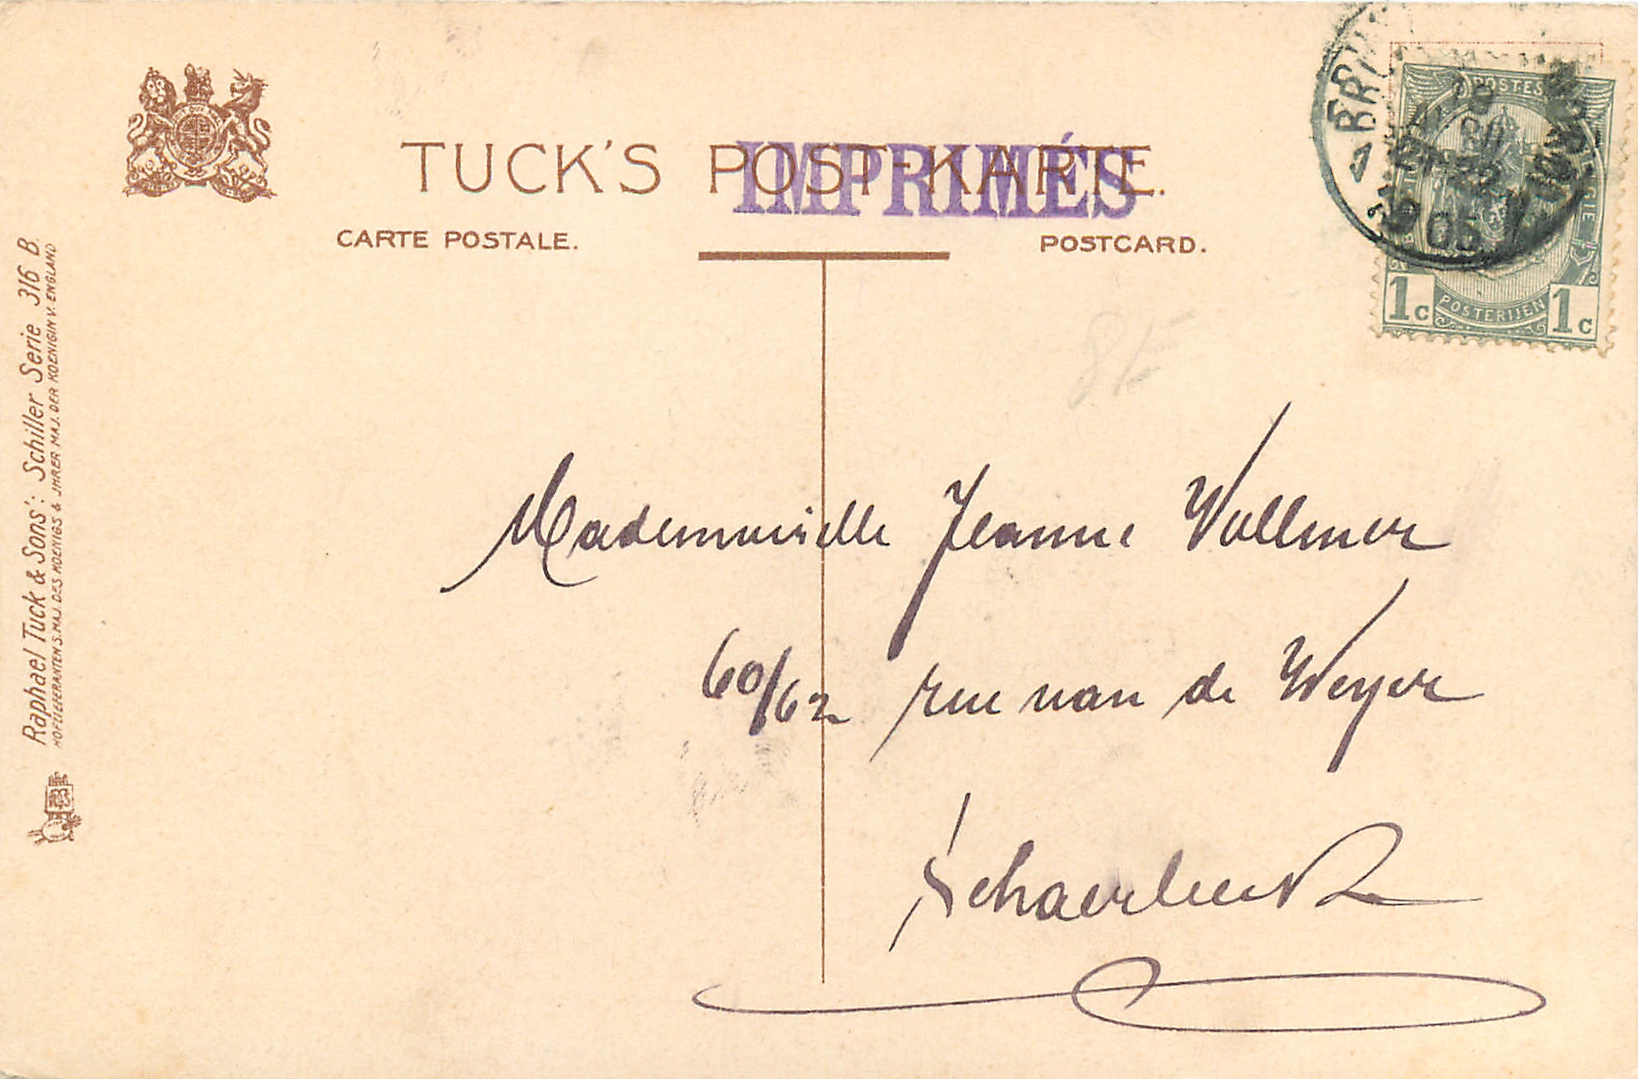 TUCK'S POST-KARTE.
IMPRIMÉS
CARTE POSTALE.
POSTCARD.
POSTES
POSTERIJEN
1c 1c
05
Raphael Tuck & Sons': Schiller Serie 316 B.
HOFLIEFERANTEN S. MAJ. DES KOENIGS & IHRER MAJ. DER KOENIGIN V. ENGLAND
Mademoiselle Jeanne Vollmer
60/62 rue van de Weyer
Schaerbeek